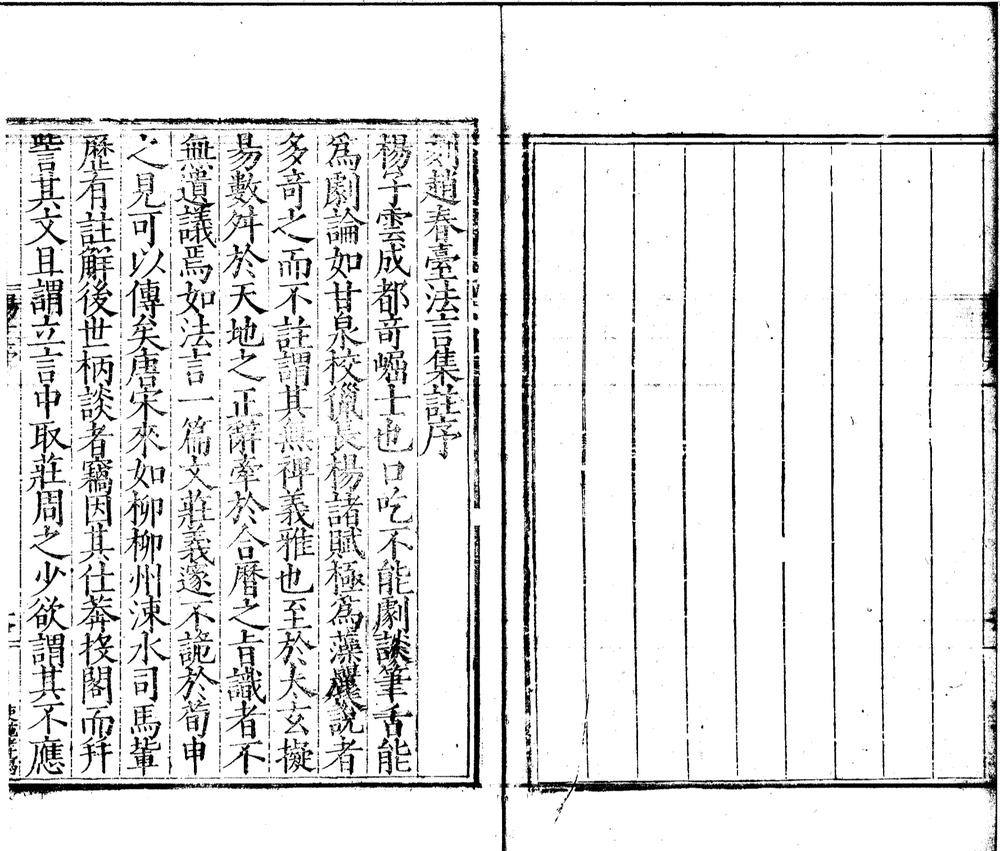 刻趙春臺法言集註序
楊子雲成都竒崛士也口吃不能劇談筆舌能
爲劇論如甘泉校獵長楊諸賦極爲藻麗說者
多竒之而不註謂其無裨義雅也至於太玄擬
易數舛於天地之正辭牽於合曆之旨識者不
無遺議焉如法言一篇文莊義邃不詭於荀申
之見可以傳矣唐宋來如柳柳州涑水司馬輩
歷有註解後世柄談者竊因其仕莽投閣而幷
訾其文且謂立言中取莊周之少欲謂其不應